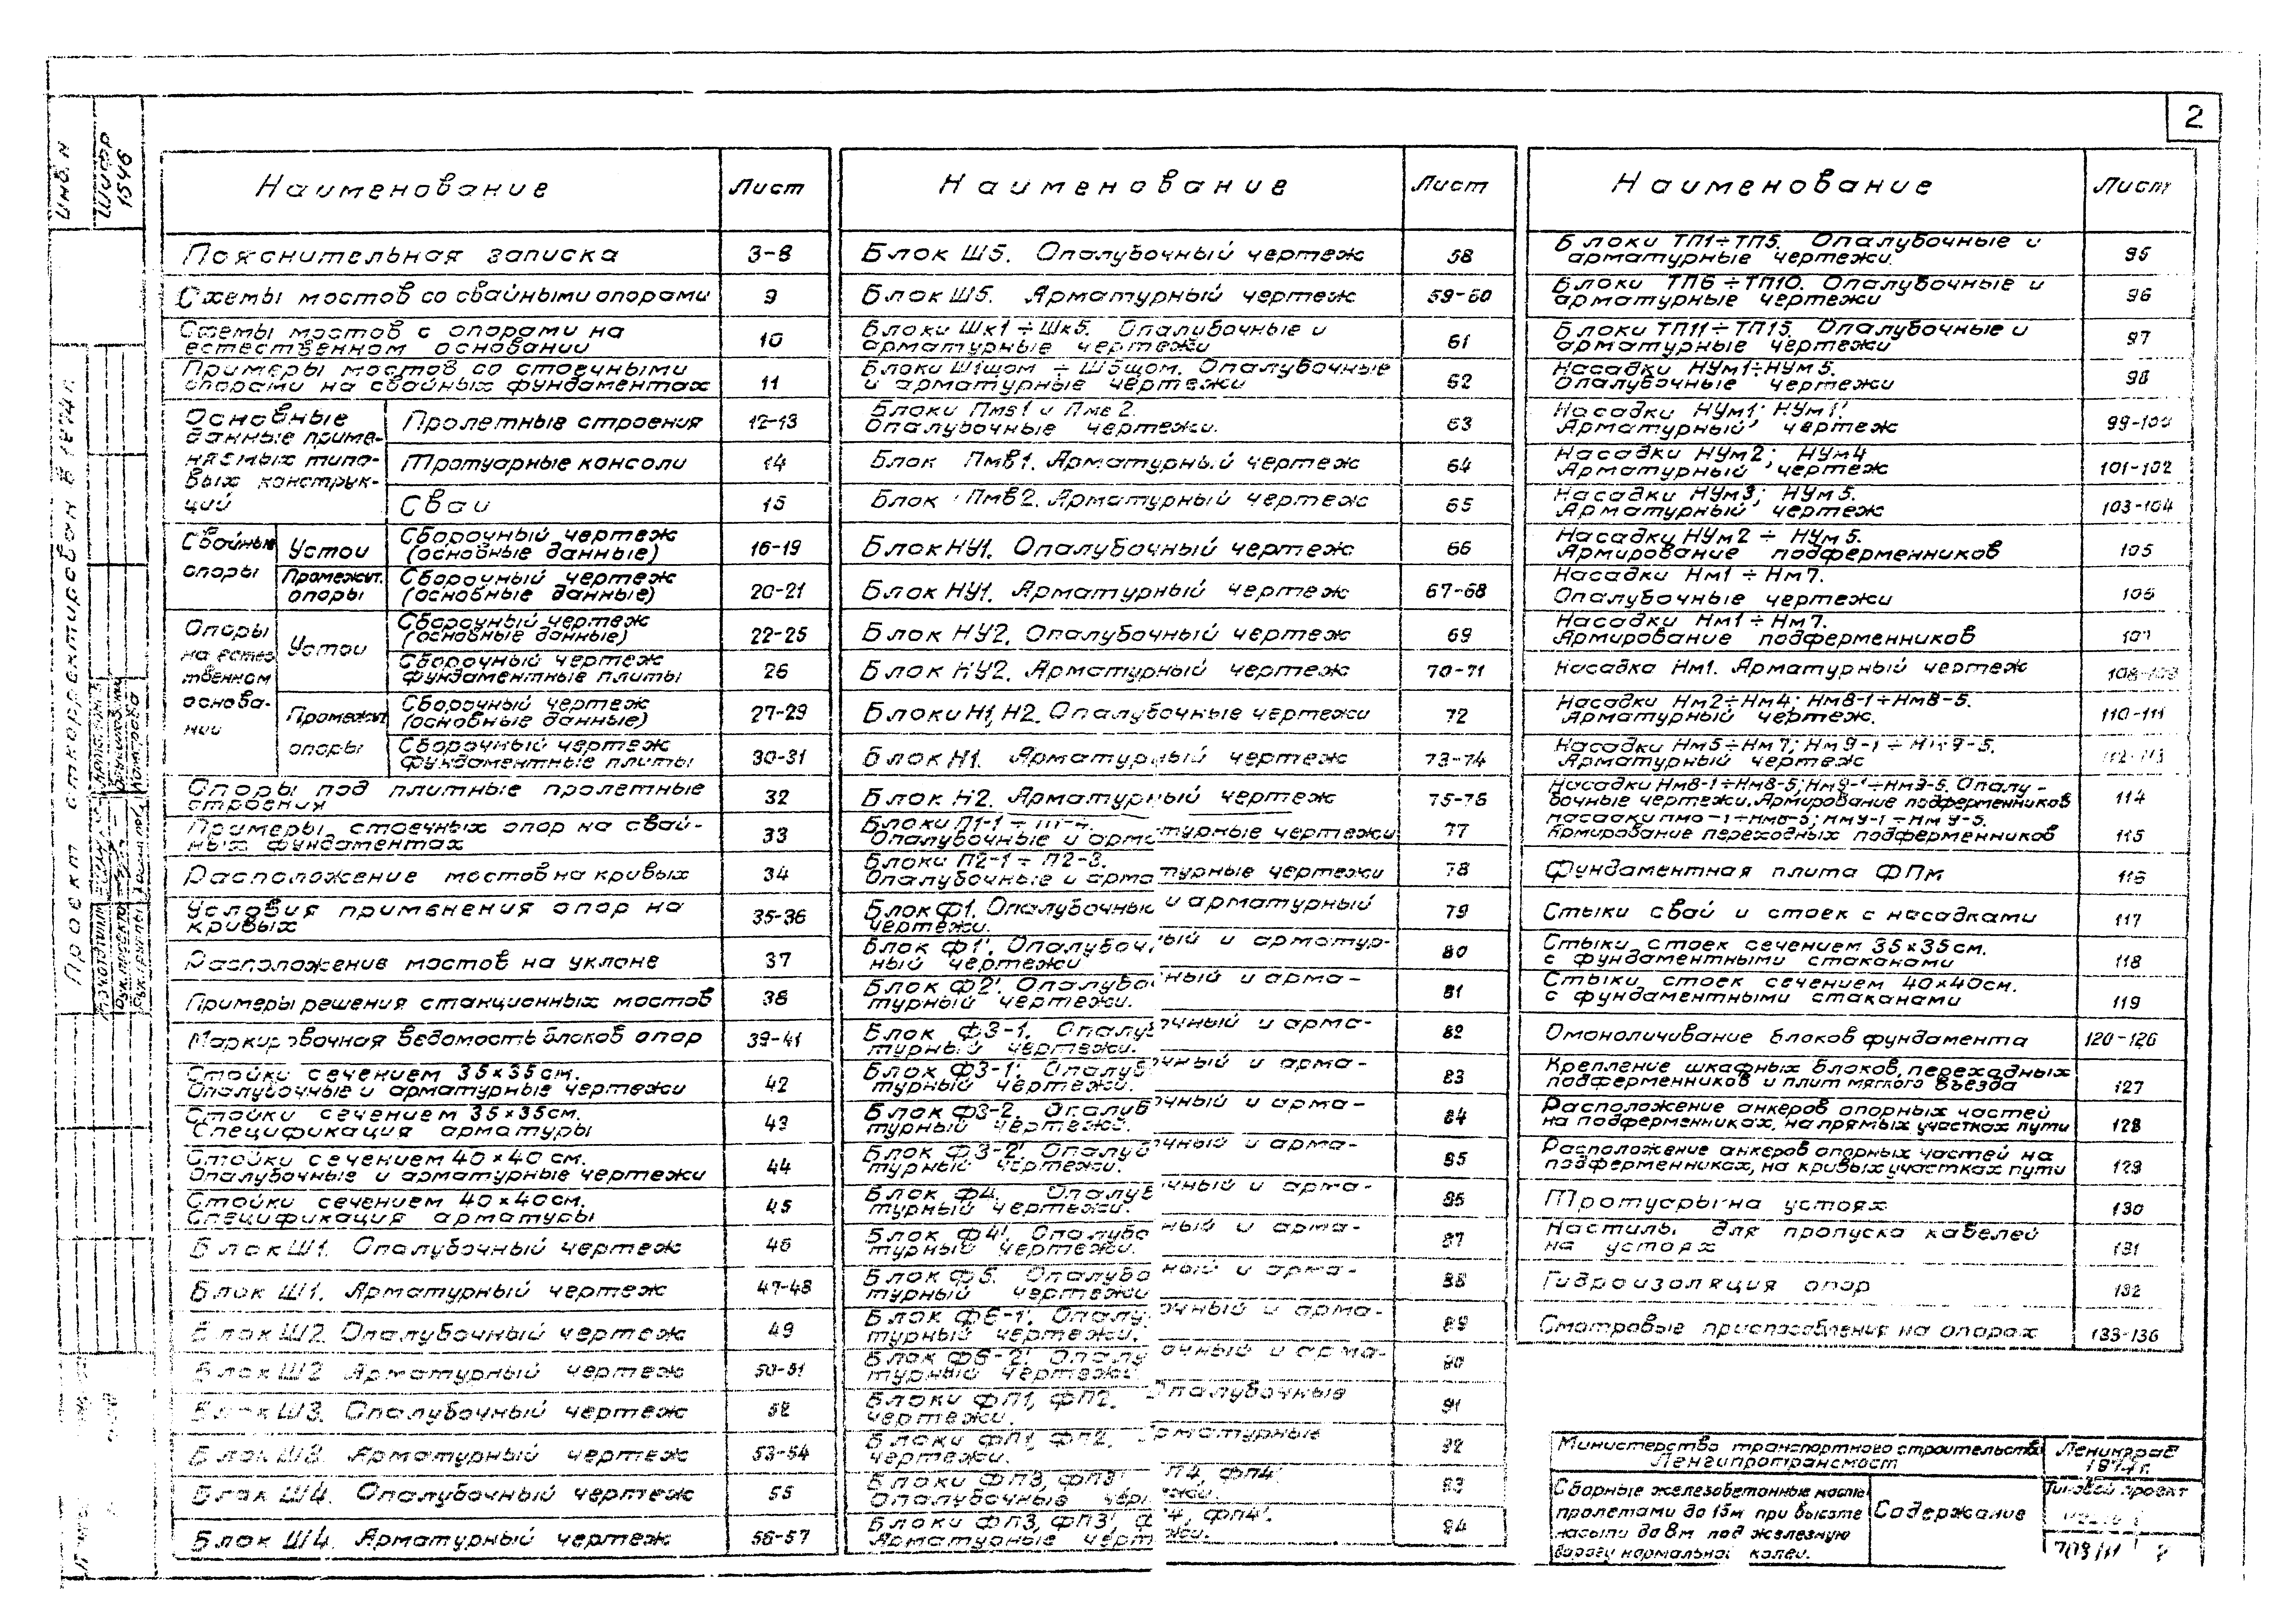 2
Инв. N
Шифр
1546
Проект откорректирован в 1974 г.
Наименование Лист
Пояснительная записка 3-8
Схемы мостов со свайными опорами 9
Схемы мостов с опорами на
естественном основании 10
Примеры мостов со стоечными
опорами на свайных фундаментах 11
Основные
данные приме-
няемых типо-
вых конструк-
ций
Пролетные строения 12-13
Тротуарные консоли 14
Сваи 15
Свайные
опоры
Устои
Сборочный чертеж
(основные данные) 16-19
Промежут.
опоры
Сборочный чертеж
(основные данные) 20-21
Опоры
на естес
твенном
основа-
нии
Устои
Сборочный чертеж
(основные данные) 22-25
Сборочный чертеж
фундаментные плиты 26
Промежут
опоры
Сборочный чертеж
(основные данные) 27-29
Сборочный чертеж
фундаментные плиты 30-31
Опоры под плитные пролетные
строения 32
Примеры стоечных опор на свай-
ных фундаментах 33
Расположение мостов на кривых 34
Условия применения опор на
кривых 35-36
Расположение мостов на уклоне 37
Примеры решения станционных мостов 38
Маркировочная ведомость блоков опор 39-41
Стойки сечением 35×35см.
Опалубочные и арматурные чертежи 42
Стойки сечением 35×35см.
Спецификация арматуры 43
Стойки сечением 40×40 см.
Опалубочные и арматурные чертежи 44
Стойки сечением 40×40см.
Спецификация арматуры 45
Блок Ш1. Опалубочный чертеж 46
Блок Ш1. Арматурный чертеж 47-48
Блок Ш2. Опалубочный чертеж 49
Блок Ш2 Арматурный чертеж 50-51
Блок Ш3. Опалубочный чертеж 52
Блок Ш3. Арматурный чертеж 53-54
Блок Ш4. Опалубочный чертеж 55
Блок Ш4. Арматурный чертеж 56-57
Наименование Лист
Блок Ш5. Опалубочный чертеж 58
Блок Ш5. Арматурный чертеж 59-60
Блоки Шк1÷Шк5. Опалубочные и
арматурные чертежи 61
Блоки Ш1щом ÷ Ш5щом. Опалубочные
и арматурные чертежи 62
Блоки Пмв1 и Пмв2.
Опалубочные чертежи. 63
Блок Пмв1. Арматурный чертеж 64
Блок Пмв2. Арматурный чертеж 65
Блок НУ1. Опалубочный чертеж 66
Блок НУ1. Арматурный чертеж 67-68
Блок НУ2. Опалубочный чертеж 69
Блок НУ2. Арматурный чертеж 70-71
Блоки Н1, Н2. Опалубочные чертежи 72
Блок Н1. Арматурный чертеж 73-74
Блок Н2. Арматурный чертеж 75-76
Блоки П1-1 ÷ П1-4.
Опалубочные и арматурные чертежи 77
Блоки П2-1 ÷ П2-3.
Опалубочные и арматурные чертежи 78
Блок Ф1. Опалубочные и арматурный
чертежи. 79
Блок Ф1'. Опалубочный и арматур-
ный чертежи 80
Блок Ф2'. Опалубочный и арма-
турный чертежи. 81
Блок Ф3-1. Опалубочный и арма-
турный чертежи. 82
Блок Ф3-1'. Опалубочный и арма-
турный чертежи. 83
Блок Ф3-2. Опалубочный и арма-
турный чертежи. 84
Блок Ф3-2'. Опалубочный и арма-
турный чертежи. 85
Блок Ф4. Опалубочный и арма-
турный чертежи. 86
Блок Ф4'. Опалубочный и арма-
турный чертежи. 87
Блок Ф5. Опалубочный и арма-
турный чертежи 88
Блок Ф6-1'. Опалубочный и арма-
турный чертежи. 89
Блок Ф6-2'. Опалубочный и арма-
турный чертежи 90
Блоки ФП1, ФП2. Опалубочные
чертежи. 91
Блоки ФП1, ФП2. Арматурные
чертежи. 92
Блоки ФП3, ФП3', ФП4, ФП4'
Опалубочные чертежи. 93
Блоки ФП3, ФП3', ФП4, ФП4'.
Арматурные чертежи. 94
Наименование Лист
Блоки ТП1÷ТП5. Опалубочные и
арматурные чертежи. 95
Блоки ТП6÷ТП10. Опалубочные и
арматурные чертежи 96
Блоки ТП11÷ТП15. Опалубочные и
арматурные чертежи 97
Насадки НУм1÷НУм5.
Опалубочные чертежи 98
Насадки НУм1; НУм1'.
Арматурный чертеж 99-100
Насадки НУм2; НУм4
Арматурный чертеж 101-102
Насадки НУм3; НУм5.
Арматурный чертеж 103-104
Насадки НУм2 ÷ НУм5.
Армирование подферменников 105
Насадки Нм1 ÷ Нм7.
Опалубочные чертежи 106
Насадки Нм1÷Нм7.
Армирование подферменников 107
Насадка Нм1. Арматурный чертеж 108-109
Насадки Нм2÷Нм4; Нм8-1÷Нм8-5.
Арматурный чертеж. 110-111
Насадки Нм5÷Нм7; Нм9-1 ÷ Нм9-5.
Арматурный чертеж 112-113
Насадки Нм8-1÷Нм8-5; Нм9-1÷Нм9-5. Опалу-
бочные чертежи. Армирование подферменников 114
Насадки Нм8-1÷Нм8-5; Нм9-1÷Нм9-5.
Армирование переходных подферменников 115
Фундаментная плита ФПм 116
Стыки свай и стоек с насадками 117
Стыки стоек сечением 35×35см.
с фундаментными стаканами 118
Стыки стоек сечением 40×40см.
с фундаментными стаканами 119
Омоноличивание блоков фундамента 120-126
Крепление шкафных блоков, переходных
подферменников и плит мягкого въезда 127
Расположение анкеров опорных частей
на подферменниках, на прямых участках пути 128
Расположение анкеров опорных частей на
подферменниках, на кривых участках пути 129
Тротуары на устоях 130
Настилы для пропуска кабелей
на устоях 131
Гидроизоляция опор 132
Смотровые приспособления на опорах 133-136
Министерство транспортного строительства
Ленгипротрансмост
Ленинград
1974г.
Сборные железобетонные мосты
пролетами до 15м при высоте
насыпи до 8м под железную
дорогу нормальной колеи.
Содержание
Типовой проект
708/11 2